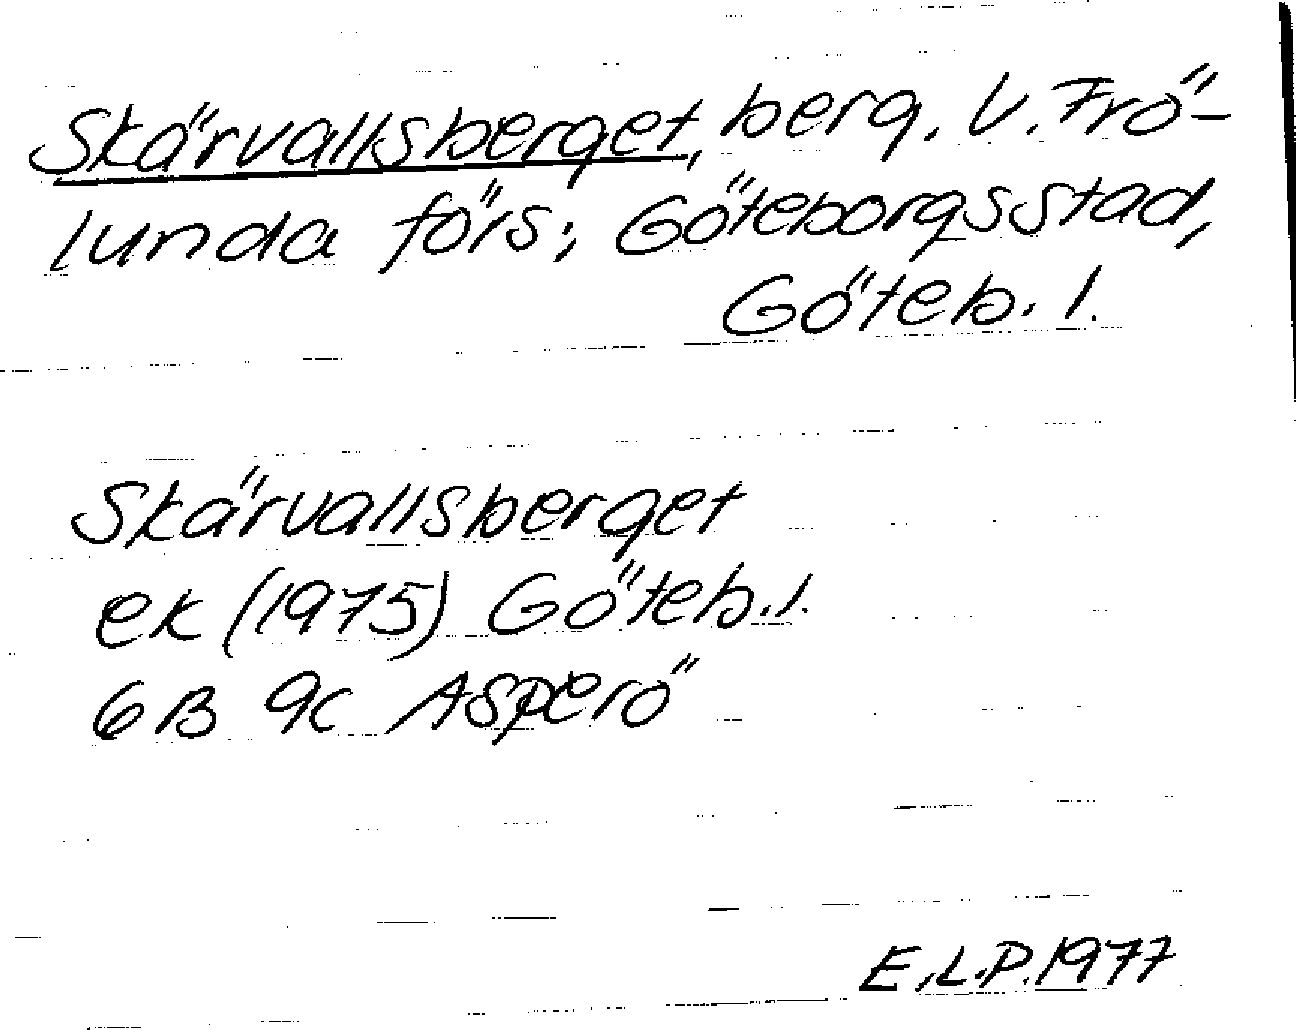 Skärvallsberget, berg. V. Frö-
lunda förs; Göteborgsstad,
Göteb. l.
Skärvallsberget
ek (1975) Göteb. l.
6B 9c Asperö
E.L.P. 1977